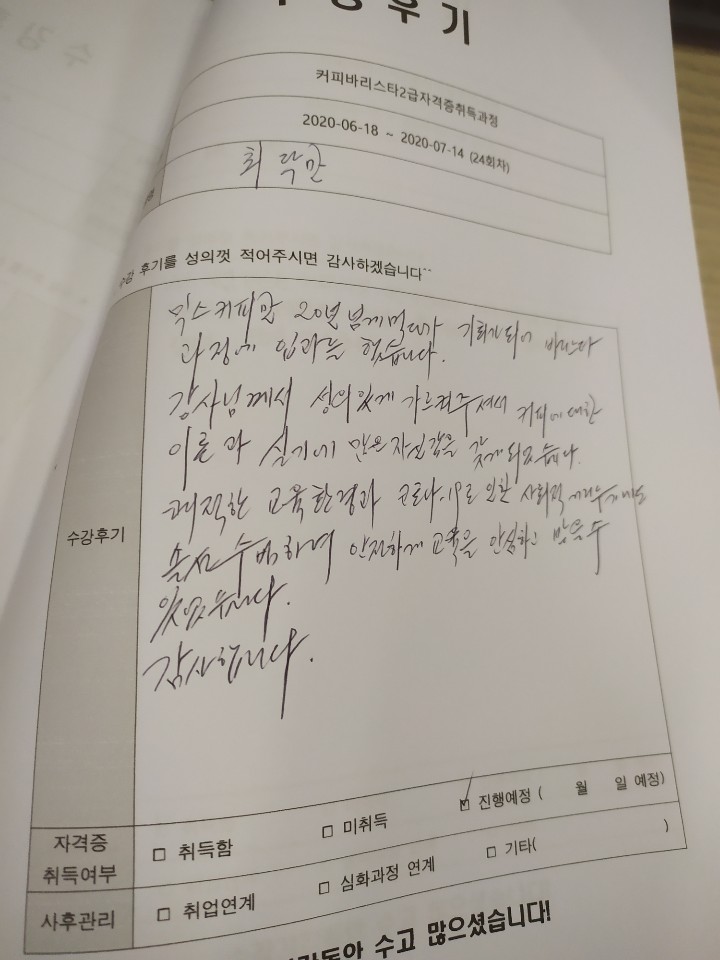 수강후기
커피바리스타2급자격증취득과정
2020-06-18 ~ 2020-07-14 (24회차)
최락만
수강 후기를 성의껏 적어주시면 감사하겠습니다^^
믹스커피만 20년 넘게 먹다가 기회가 되어 바리스타
과정에 입과를 했습니다.
강사님께서 성의있게 가르켜주셔서 커피에 대한
이론과 실기에 많은 자신감을 갖게 되었습니다.
쾌적한 교육환경과 코로나-19로 인한 사회적
솔선수범하여 안전하게 교육을 안심하고 받을수
있었습니다.
감사합니다.
수강후기
자격증
취득여부
□ 취득함 □ 미취득 ☑ 진행예정 ( 월 일 예정)
사후관리
□ 취업연계 □ 심화과정 연계 □ 기타( )
수고 많으셨습니다!